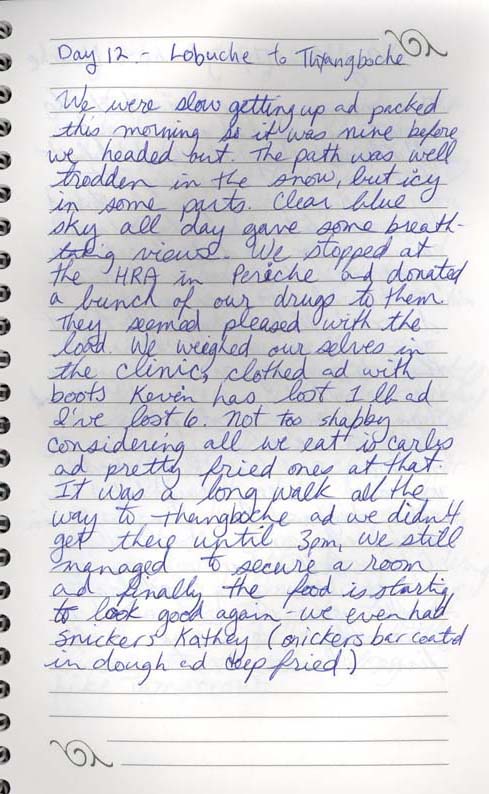 Day 12 - Lobuche to Thyangboche
We were slow getting up ad packed
this morning so it was nine before
we headed out. The path was well
trodden in the snow, but icy
in some parts. Clear blue
sky all day gave some breath-
taking views. We stopped at
the HRA in Periche ad donated
a bunch of our drugs to them.
They seemed pleased with the
load. We weighed our selves in
the clinic, clothed ad with
boots Keven has lost 1 lb ad
I've lost 6. Not too shabby
considering all we eat is carbs
ad pretty fried ones at that.
It was a long walk all the
way to Thangboche ad we didn't
get there until 3pm, we still
managed to secure a room
ad finally the food is starting
to look good again - we even had
Snickers Kathey (snickers bar coated
in dough ad deep fried)